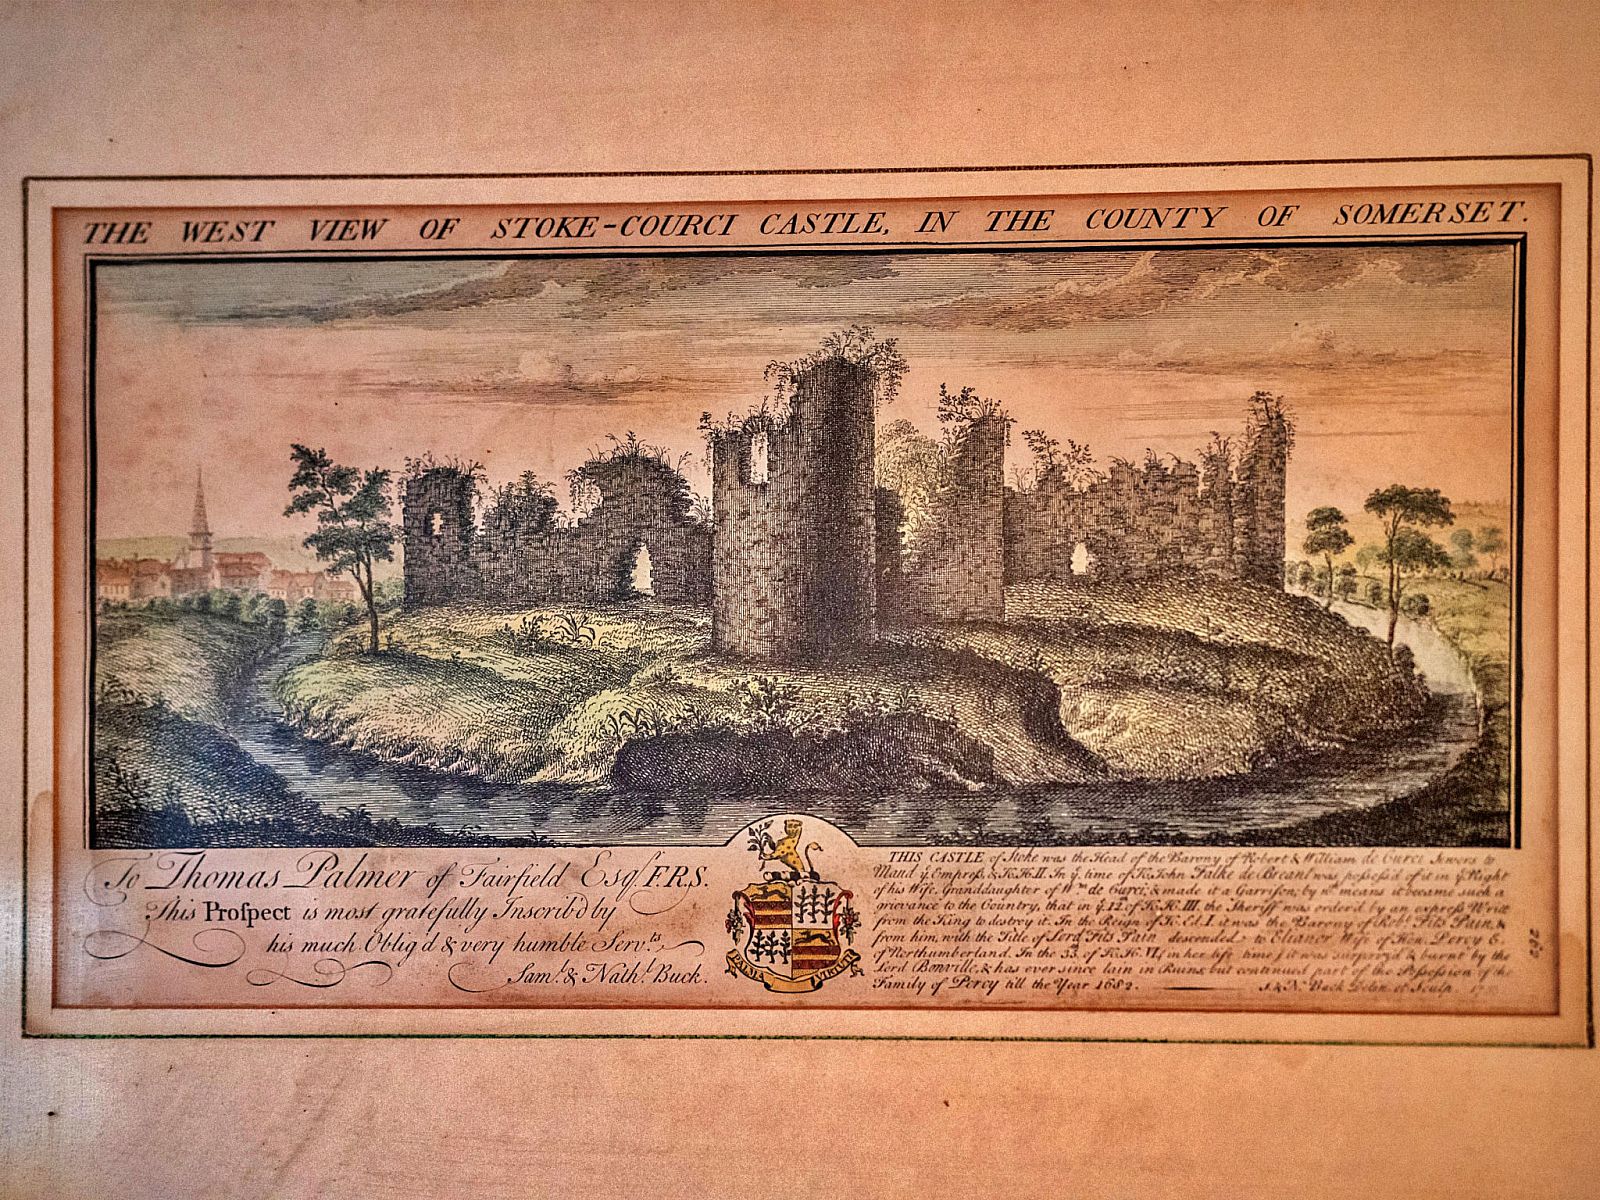 THE WEST VIEW OF STOKE-COURCI CASTLE, IN THE COUNTY OF SOMERSET.
To Thomas Palmer of Fairfield Esqr. F.R.S.
This Prospect is most gratefully Inscrib'd by
his much Oblig'd & very humble Servts.
Saml. & Nathl. Buck.
PALMA VIRTUTI
THIS CASTLE of Stoke was the Head of the Barony of Robert & William de Curci Sewers to
Maud ye Empress & K. H. II. In ye time of K. John Falke de Breant was possess'd of it in ye Right
of his Wife, Granddaughter of Wm. de Curci; & made it a Garrison; by wch. means it became such a
grievance to the Country, that in ye 12th. of K. H. III. the Sheriff was order'd by an express Writt
from the King to destroy it. In the Reign of K. Ed. I. it was the Barony of Robt. Fits Pain, &
from him, with the Title of Lord Fits Pain descended to Elianor Wife of Hen. Percy E.
of Northumberland. In the 33. of K. H. VI. (in her life time) it was surpryz'd & burnt by the
Lord Bonville, & has ever since lain in Ruins, but continued part of the Possession of the
Family of Percy till the Year 1682.
S. & N. Buck Delin. et Sculp.
262